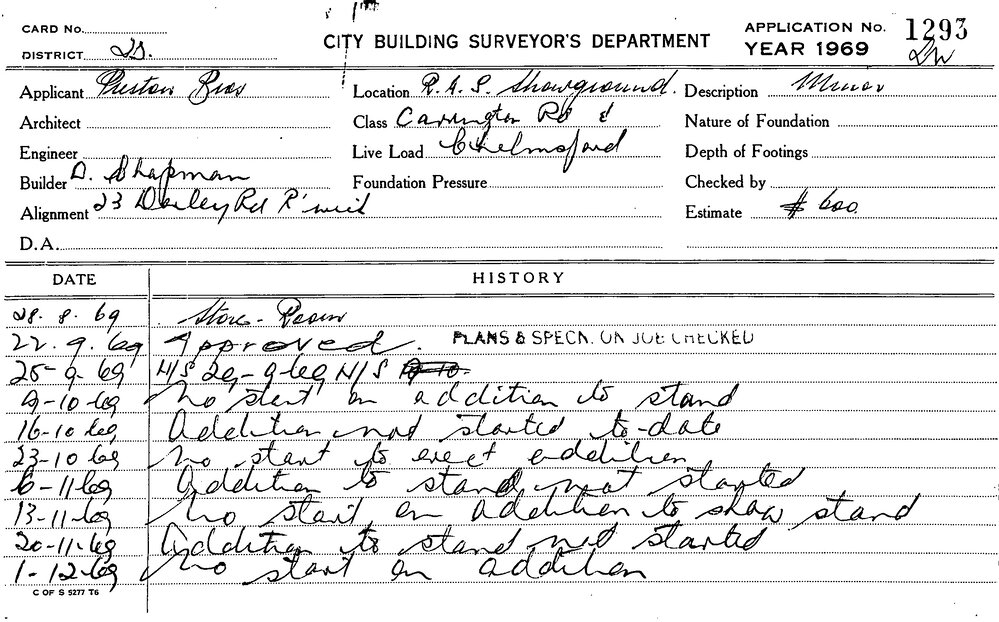 CARD No.
DISTRICT
CITY BUILDING SURVEYOR'S DEPARTMENT
APPLICATION No. 1293
YEAR 1969
Applicant Preston Bros
Location R.A.S. Showground.
Description Minor
Architect
Class Carrington Rd &
Nature of Foundation
Engineer
Live Load Chelmsford
Depth of Footings
Builder D. Chapman
Foundation Pressure
Checked by
Alignment 23 Darley Rd R'wick
Estimate $600.
D.A.
DATE HISTORY
28.8.69 Store-Room
22.9.69 Approved. PLANS & SPECN. ON JOB CHECKED
25-9-69 N/S 29-9-69 N/S
9-10-69 No start on addition to stand
16-10-69 Addition not started to-date
23-10-69 No start to erect addition
6-11-69 Addition to stand not started
13-11-69 No start on addition to show stand
20-11-69 Addition to stand not started
1-12-69 No start on addition
C OF S 5277 T6